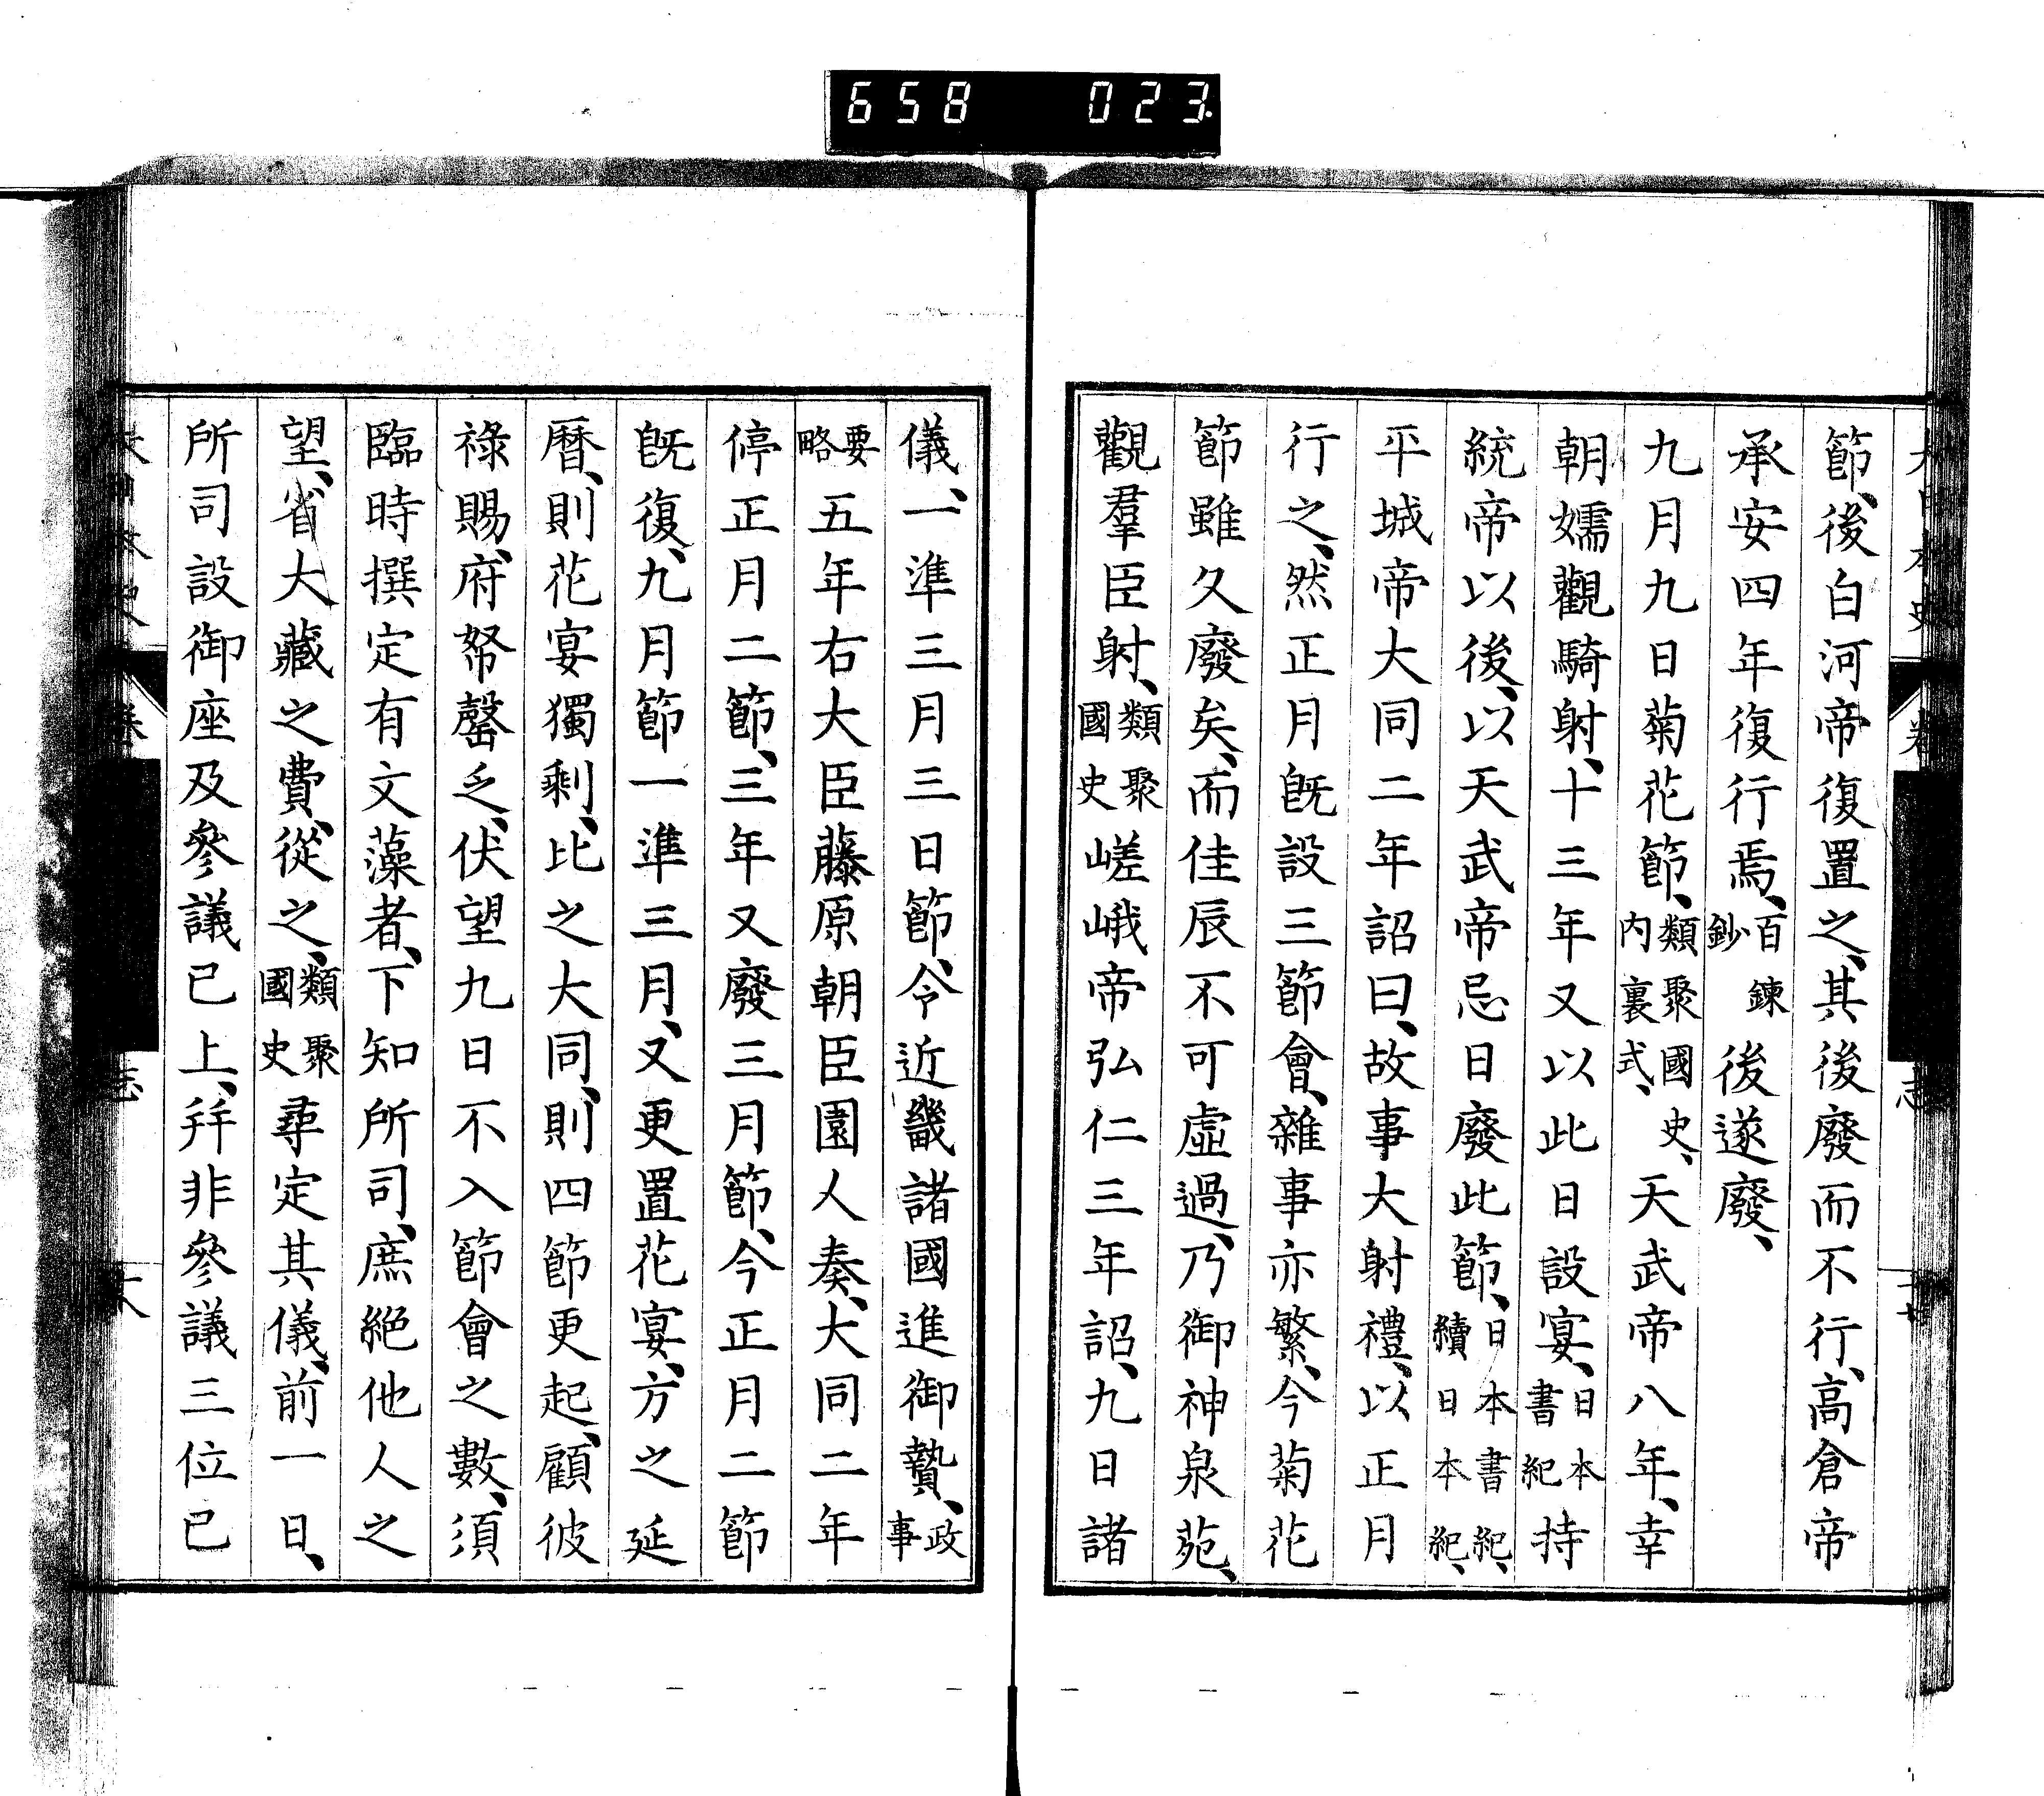 658 023
節、後白河帝復置之、其後廢而不行、高倉帝
承安四年復行焉、百鍊鈔後遂廢、
九月九日菊花節、類聚國史、內裏式、天武帝八年、幸
朝嬬觀騎射、十三年又以此日設宴、日本書紀持
統帝以後、以天武帝忌日廢此節、日本書紀、續日本紀、
平城帝大同二年詔曰、故事大射禮、以正月
行之、然正月旣設三節會、雜事亦繁、今菊花
節雖久廢矣、而佳辰不可虛過、乃御神泉苑、
觀羣臣射、類聚國史嵯峨帝弘仁三年詔、九日諸
儀、一準三月三日節、令近畿諸國進御贄、政事
要略五年右大臣藤原朝臣園人奏、大同二年
停正月二節、三年又廢三月節、今正月二節
旣復、九月節一準三月、又更置花宴、方之延
曆、則花宴獨剩、比之大同、則四節更起、顧彼
祿賜、府帑罄乏、伏望九日不入節會之數、須
臨時撰定有文藻者、下知所司、庶絕他人之
望、省大藏之費、從之、類聚國史尋定其儀、前一日、
所司設御座及參議已上、幷非參議三位已